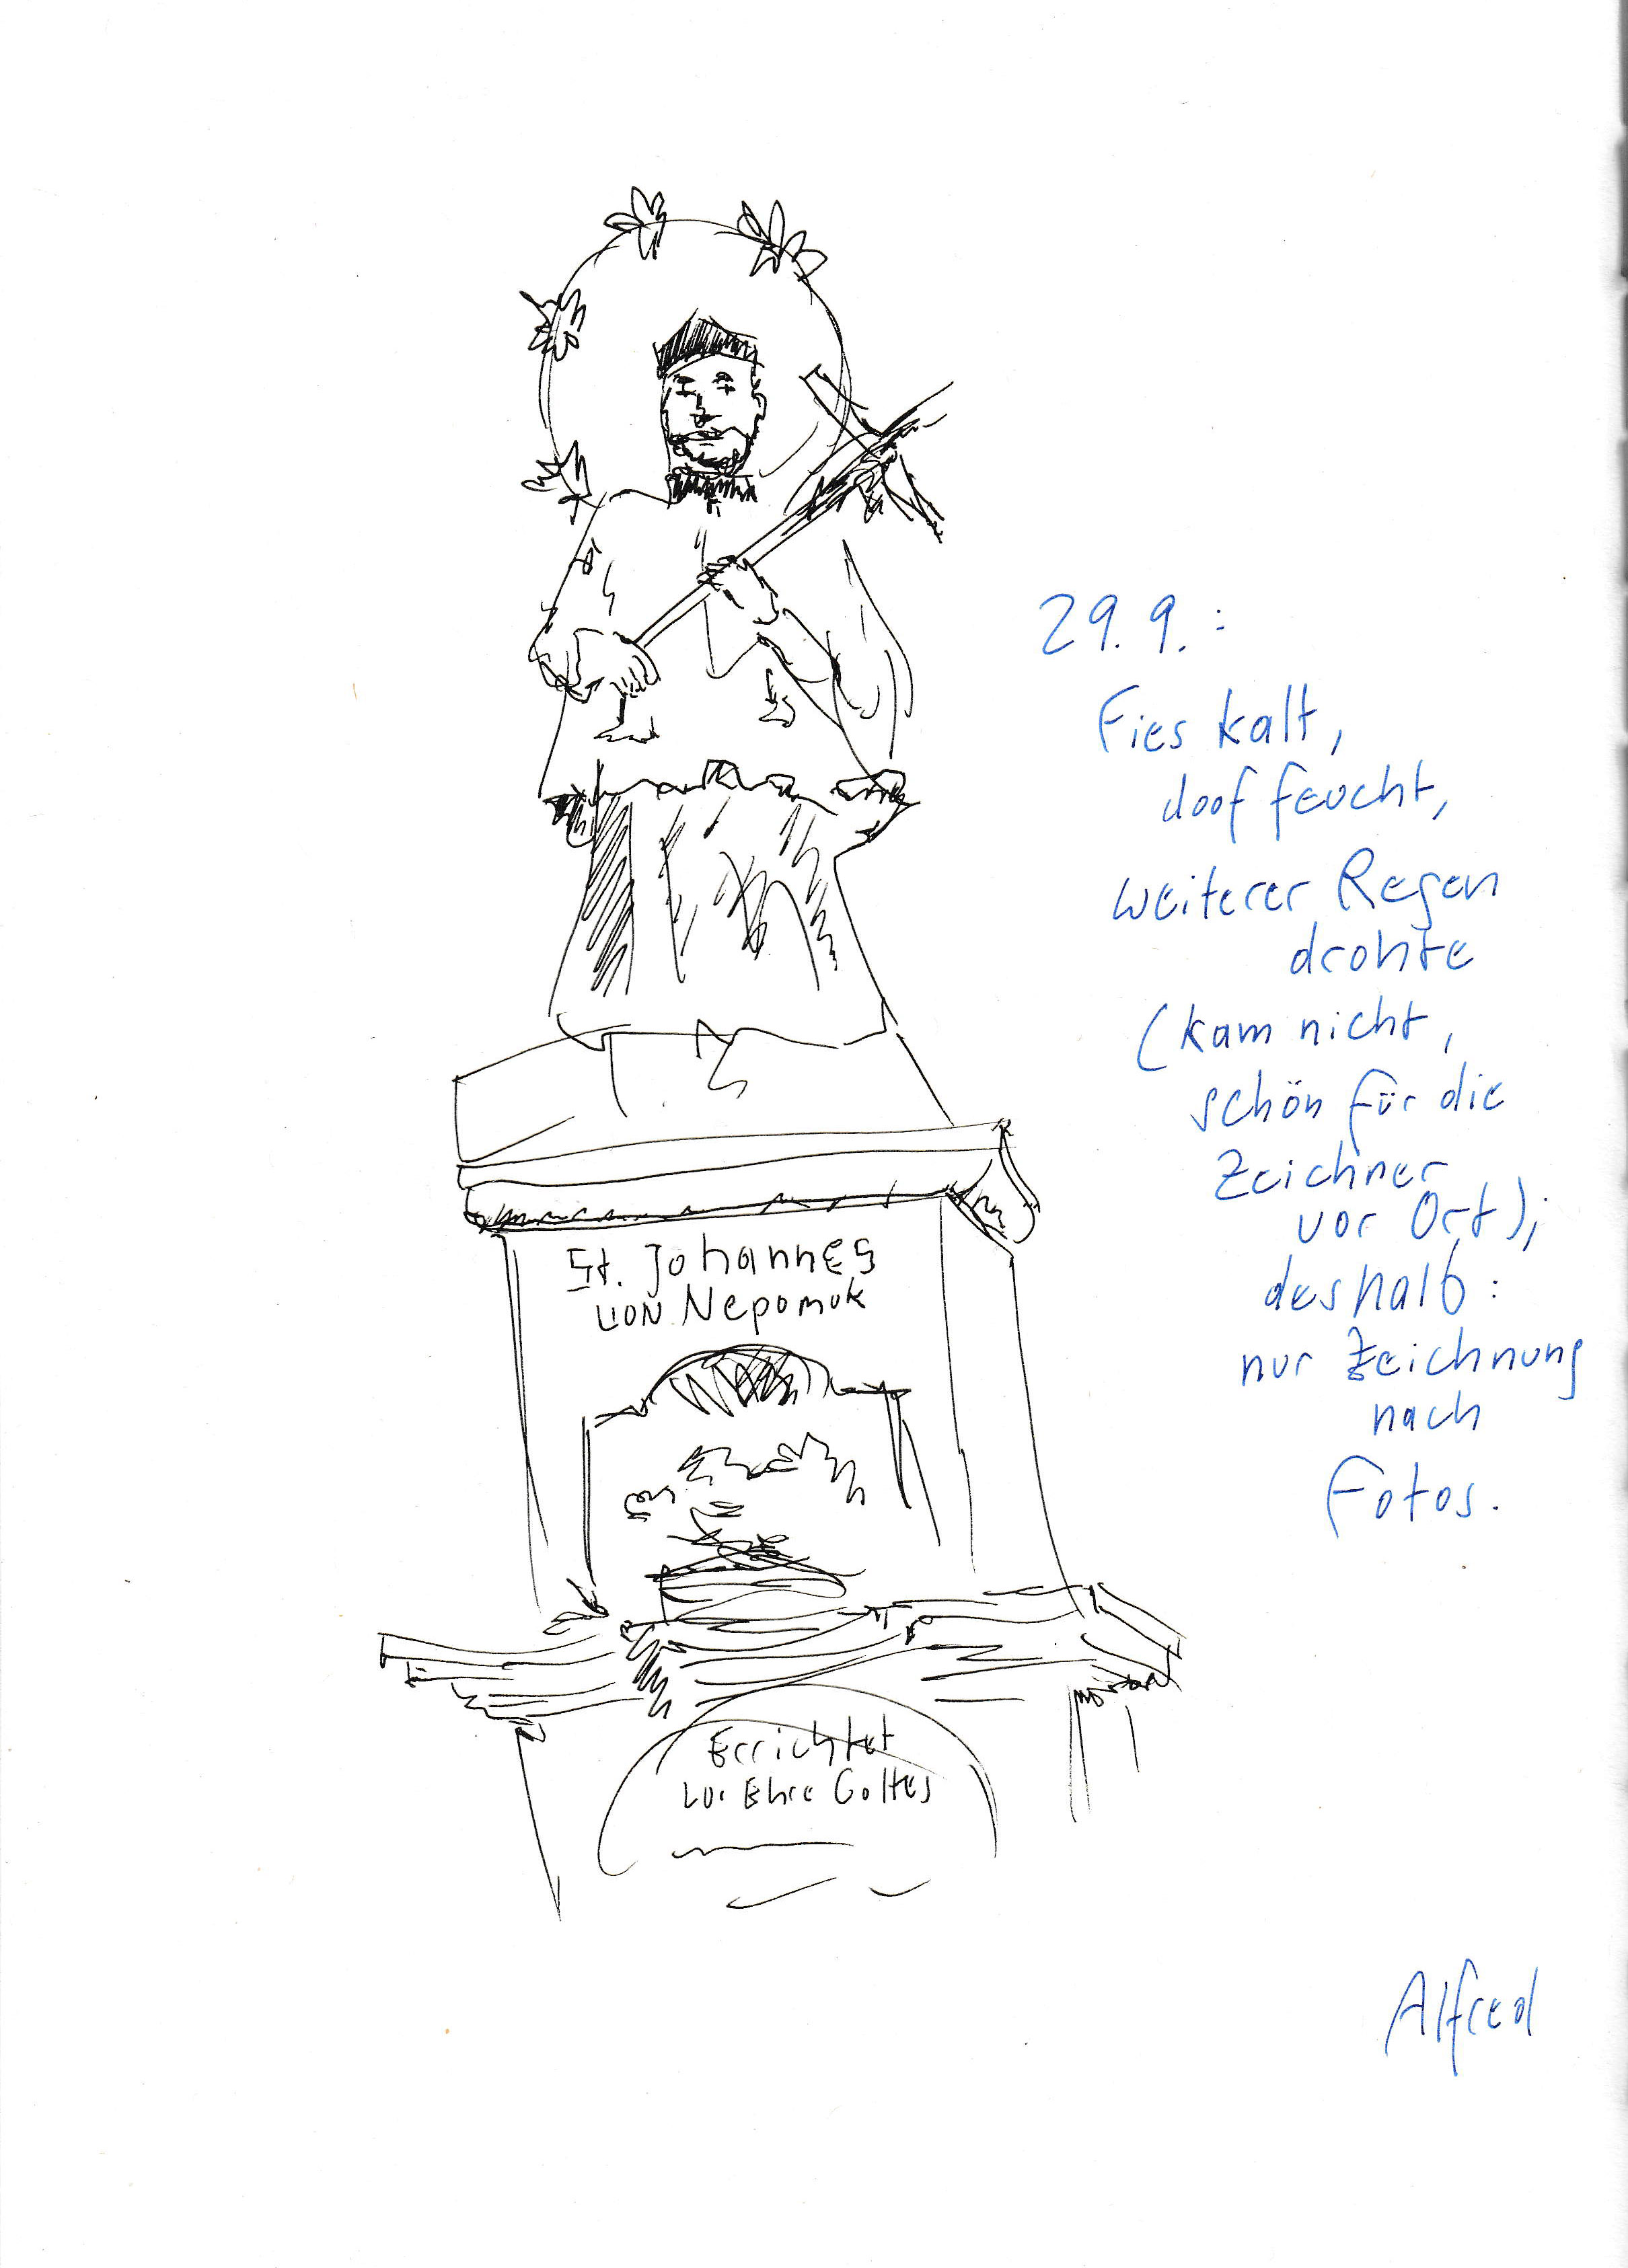 29.9.:
Fies kalt,
doof feucht,
weiterer Regen
drohte
(kam nicht,
schön für die
Zeichner
vor Ort);
deshalb:
nur Zeichnung
nach
Fotos.
St. Johannes
von Nepomuk
Errichtet
zur Ehre Gottes
Alfred